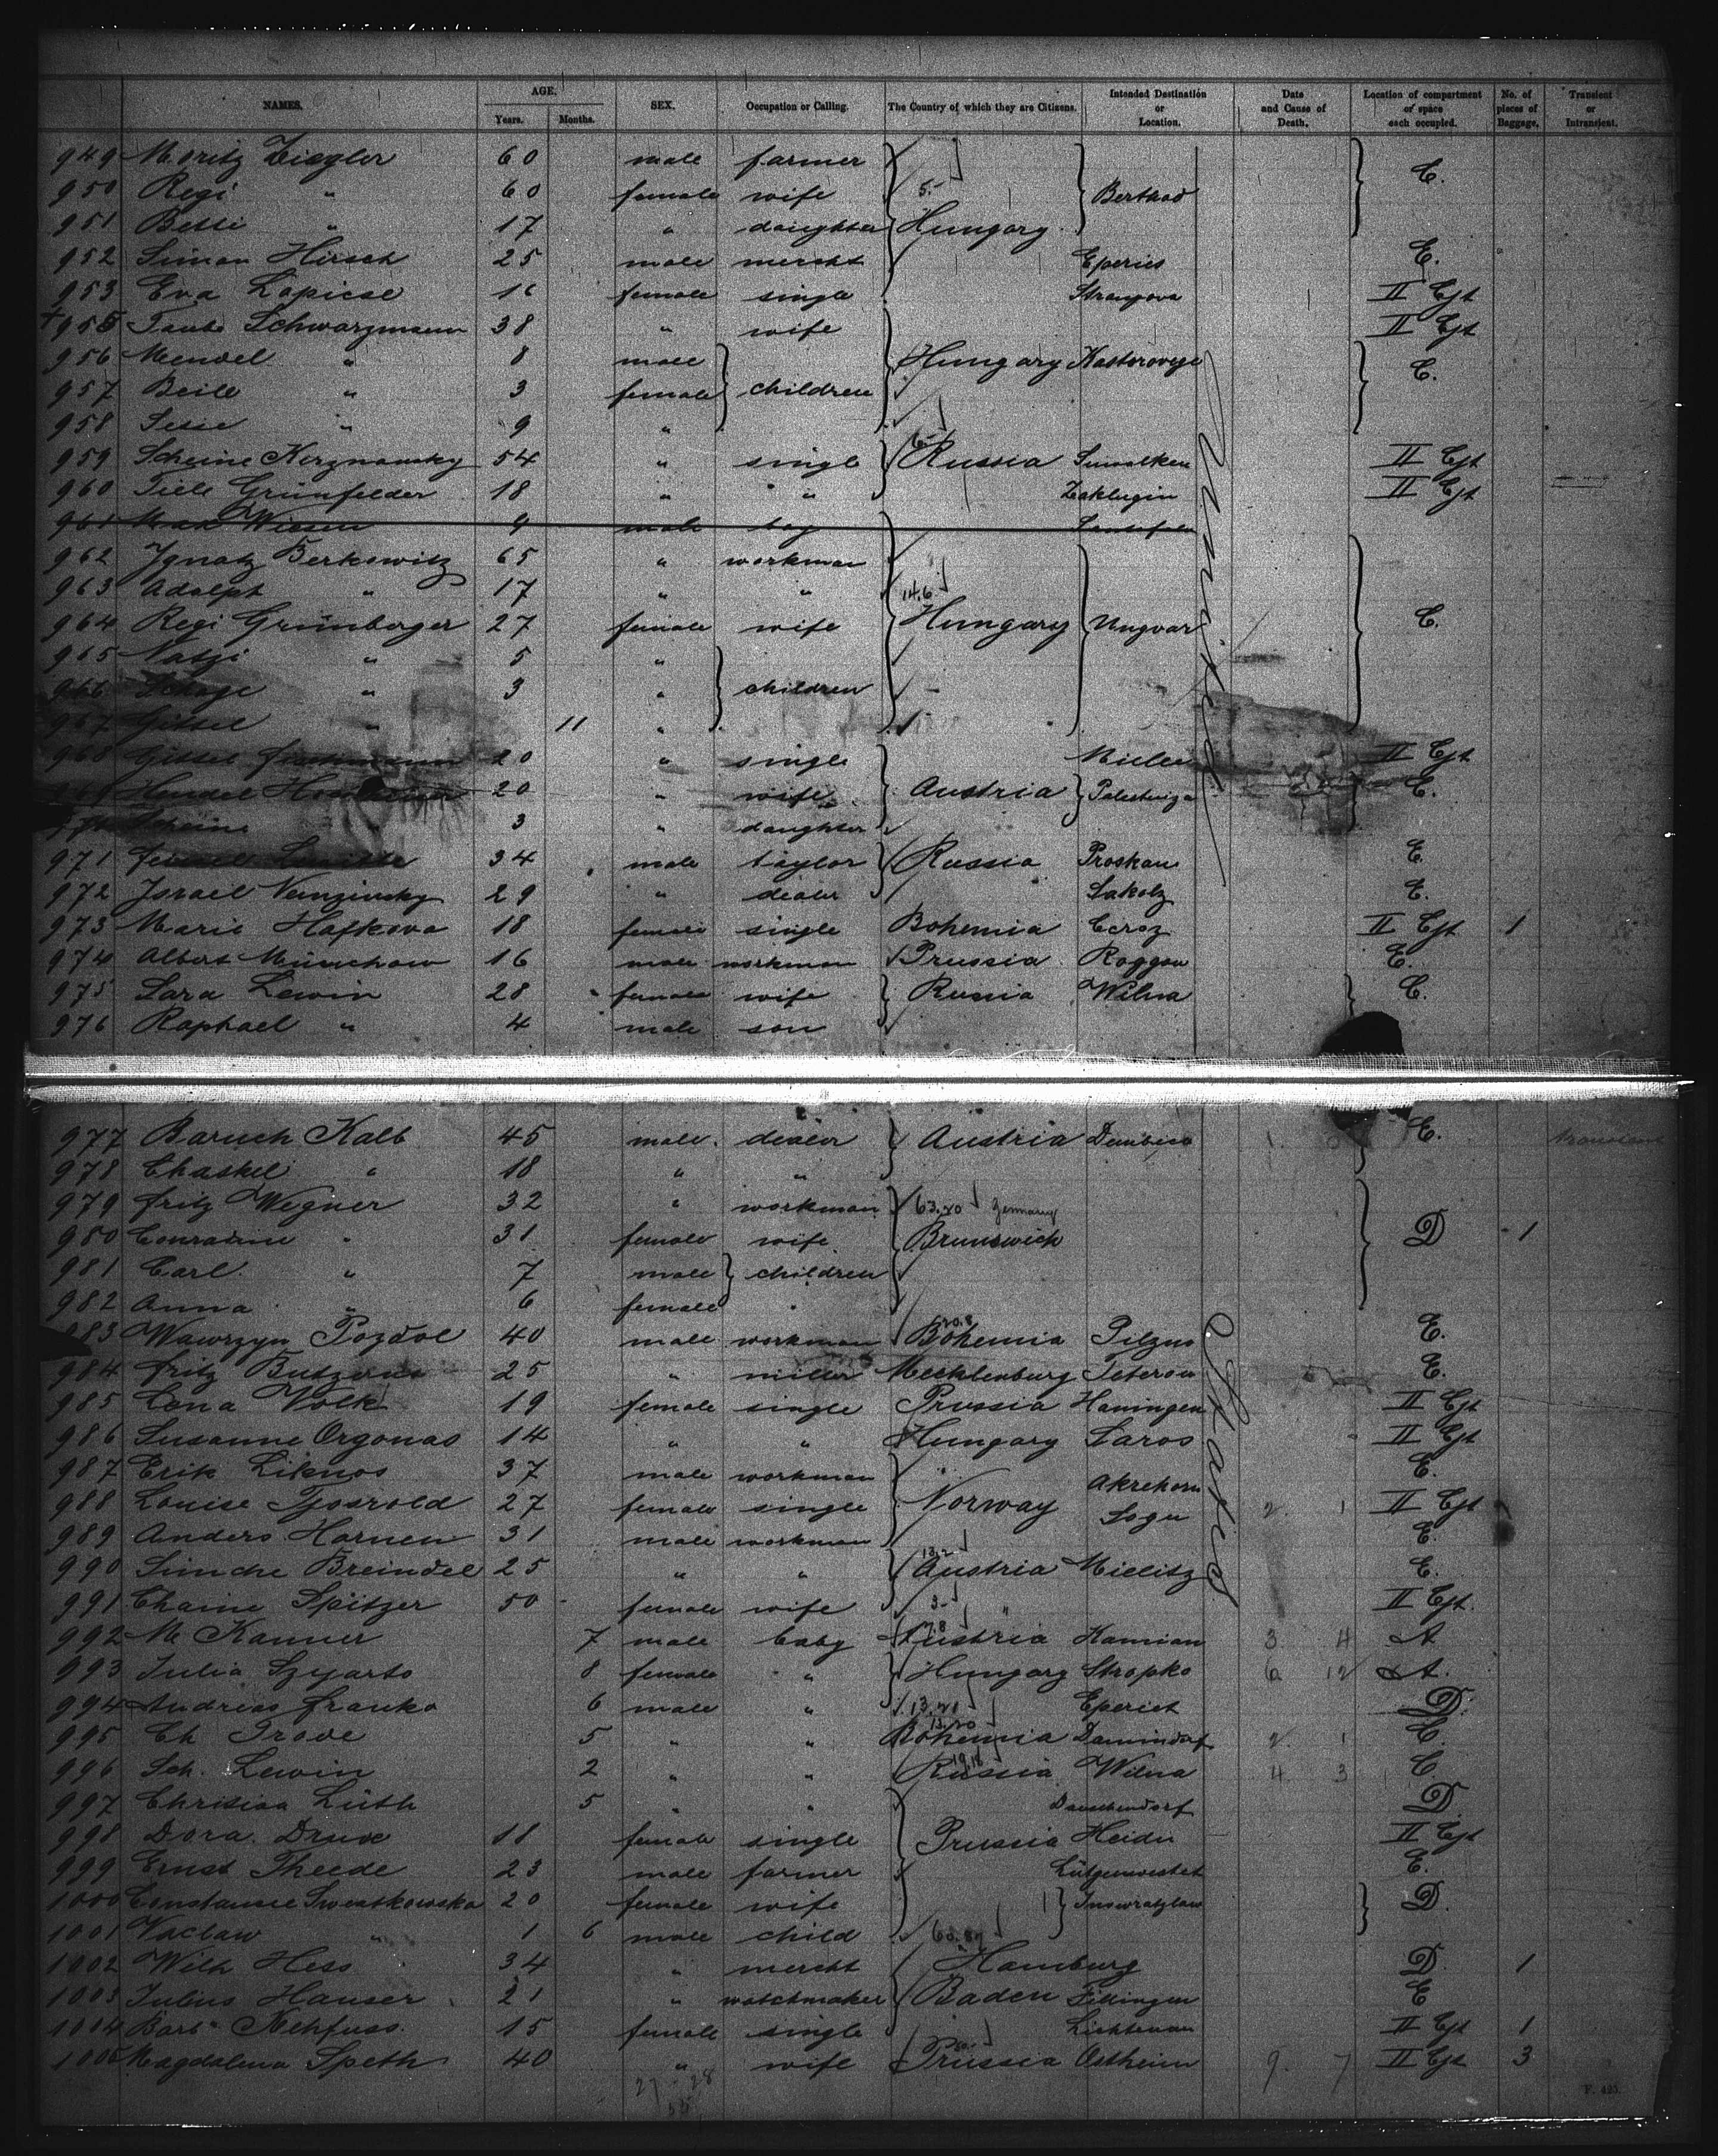 NAMES. AGE. Years. Months. SEX. Occupation or Calling. The Country of which they are Citizens. Intended Destination or Location. Date and Cause of Death. Location of compartment or space each occupied. No. of pieces of Baggage. Transient or Intransient.
949 Moritz Ziegler 60 male farmer
950 Regi " 60 female wife 5.- Berthod E.
951 Betti " 17 " daughter Hungary
952 Simon Hirsch 25 male mercht Eperies E.
953 Eva Lapicse 16 female single II Cjt
+955 Taube Schwarzmann 38 " wife II Cjt
956 Mendel " 8 male Hungary C.
957 Beile " 3 female children
958 Sesie " 9 "
959 Scheine 54 " single Russia Suwalken II Cjt
960 Grünfelder 18 " " II Cjt
961 Max Wiesen 9 male boy
962 Ignatz Berkowitz 65 " workman
963 Adolph " 17 " " 14.6
964 Regi Grünberger 27 female wife Hungary Ungvar C.
965 " 5 "
966 " 3 " children
967 Gittel " 11 "
968 Gittel 20 " single II Cjt
Hendel 20 " wife Austria C.
Scheine 3 " daughter
971 34 male taylor Russia Proskau E.
972 Israel 29 " dealer E.
973 Marie Hafkova 18 female single Bohemia II Cjt 1
974 Albert Münchow 16 male workman Prussia Roggow E.
975 Sara Lewin 28 female wife Russia Wilna C.
976 Raphael " 4 male son
977 Baruch Kalb 45 male dealer Austria E.
978 Chaskel " 18 " "
979 Fritz Wegner 32 " workman 63.20 Germany
980 Conradine " 31 female wife Brunswich D 1
981 Carl " 7 male children
982 Anna " 6 female "
983 Wawrzyn Pozdol 40 male workman Bohemia Pilzno E.
984 Fritz 25 " miller Mecklenburg Teterow E.
985 Lena Volk 19 female single Prussia Haningen II Cjt
986 Susanne Orgonas 14 " " Hungary Saros II Cjt
987 Erik Liknos 37 male workman E.
988 Louise 27 female single Norway Sogn 2 1 II Cjt
989 Anders Hornen 31 male workman E.
990 Simche Breindel 25 " " 13.2 Austria Mielitz E.
991 Chaine Spitzer 50 female wife 3- " II Cjt.
992 M Kanner 7 male baby Austria Hamian 3 4 A
993 Julia Szyarto 8 female " Hungary Stropko 6 12 A.
994 Andreas Franko 6 male " 13.20 Eperiet D.
995 Ch Trove 5 " " 13.20 Bohemia 2 1 C.
996 Sch. Lewin 2 " " Russia Wilna 4 3 C
997 Christian Lüth 5 " " D.
998 Dora 18 female single Prussia Heide II Cjt
999 Ernst Theede 23 male farmer Lütgenwestet E.
1000 Constansie Sweatkowska 20 female wife Inowratzlaw D.
1001 Vaclaw " 1 6 male child
1002 Wilh Hess 34 " mercht Hamburg D. 1
1003 Julius Hauser 21 " watchmaker Baden E
1004 Barba Nehfuss 15 female single Lichtenau II Cjt 1
1005 Magdalena Speth 40 " wife Prussia Ostheim 9 7 II Cjt 3
27-28
F. 425.